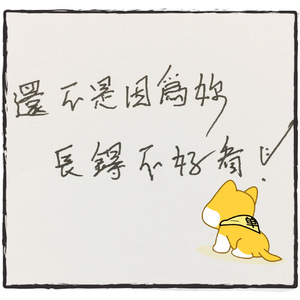 還不是因爲妳
長得不好看!
单